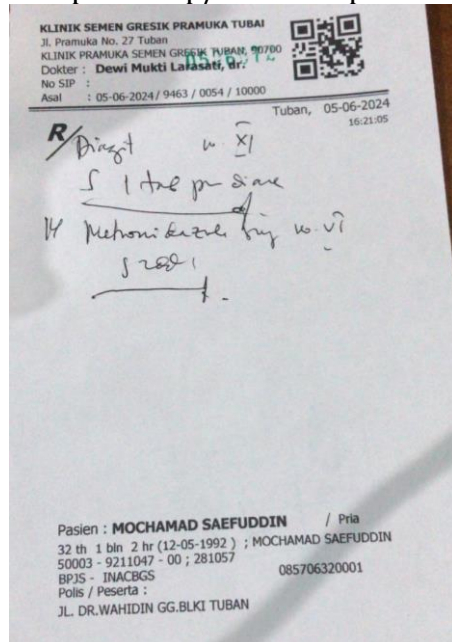 KLINIK SEMEN GRESIK PRAMUKA TUBAI
Jl. Pramuka No. 27 Tuban
KLINIK PRAMUKA SEMEN GRESIK TUBAN, 90700
Dokter : Dewi Mukti Larasati, dr.
No SIP :
Asal : 05-06-2024/ 9463 / 0054 / 10000
Tuban, 05-06-2024
16:21:05
R/ Diagit no XI
S 1 tab prn diare
R/ Metronidazole no VI
S
Pasien : MOCHAMAD SAEFUDDIN / Pria
32 th 1 bln 2 hr (12-05-1992 ) ; MOCHAMAD SAEFUDDIN
50003 - 9211047 - 00 ; 281057
BPJS - INACBGS 085706320001
Polis / Peserta :
JL. DR.WAHIDIN GG.BLKI TUBAN